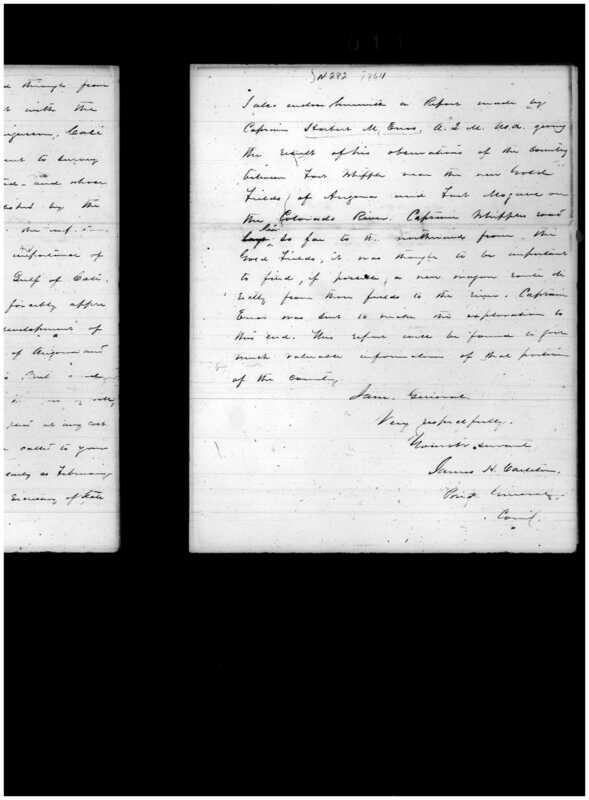 d through from
with the
Ferguson, Cali
sent to survey
and whose
by the
the
importance of
Gulf of Cali.
forcibly appre
development of
of Arizona and
But
at any cost
called to your
early as February
Secretary of State
N 292 1864
I also enclose herewith a Report made by
Captain Herbert M. Enos, A. Q. M. USA. giving
the result of his observations of the country
between Fort Whipple near the new Gold
Fields of Arizona and Fort Mojave on
the Colorado River. Captain Whipples road
lays so far to the northward from the
Gold Fields, it was thought to be important
to find, if possible, a new wagon route di
rectly from those fields to the river. Captain
Enos was sent to make this exploration to
this end. His report will be found to give
much valuable information of that portion
of the country
I am, General
Very respectfully.
Your obt. servant
James H. Carleton.
Brig General
Comd.